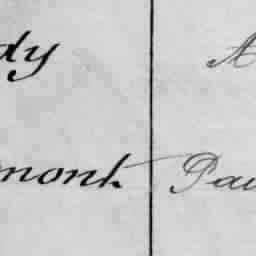 dy A
mont Pau